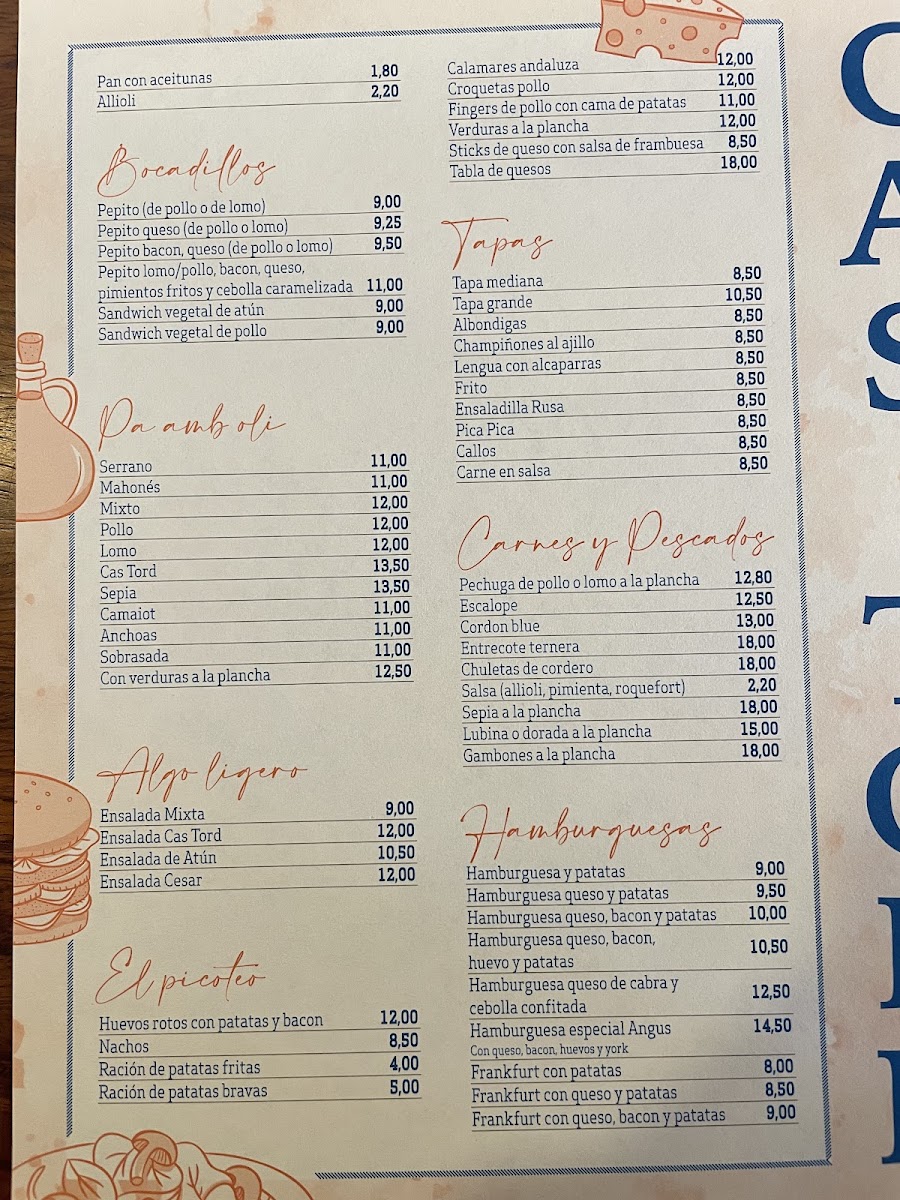 Pan con aceitunas 1,80
Allioli 2,20
Bocadillos
Pepito (de pollo o de lomo) 9,00
Pepito queso (de pollo o lomo) 9,25
Pepito bacon, queso (de pollo o lomo) 9,50
Pepito lomo/pollo, bacon, queso,
pimientos fritos y cebolla caramelizada 11,00
Sandwich vegetal de atún 9,00
Sandwich vegetal de pollo 9,00
Pa amb oli
Serrano 11,00
Mahonés 11,00
Mixto 12,00
Pollo 12,00
Lomo 12,00
Cas Tord 13,50
Sepia 13,50
Camaiot 11,00
Anchoas 11,00
Sobrasada 11,00
Con verduras a la plancha 12,50
Algo ligero
Ensalada Mixta 9,00
Ensalada Cas Tord 12,00
Ensalada de Atún 10,50
Ensalada Cesar 12,00
El picoteo
Huevos rotos con patatas y bacon 12,00
Nachos 8,50
Ración de patatas fritas 4,00
Ración de patatas bravas 5,00
Calamares andaluza 12,00
Croquetas pollo 12,00
Fingers de pollo con cama de patatas 11,00
Verduras a la plancha 12,00
Sticks de queso con salsa de frambuesa 8,50
Tabla de quesos 18,00
Tapas
Tapa mediana 8,50
Tapa grande 10,50
Albondigas 8,50
Champiñones al ajillo 8,50
Lengua con alcaparras 8,50
Frito 8,50
Ensaladilla Rusa 8,50
Pica Pica 8,50
Callos 8,50
Carne en salsa 8,50
Carnes y Pescados
Pechuga de pollo o lomo a la plancha 12,80
Escalope 12,50
Cordon blue 13,00
Entrecote ternera 18,00
Chuletas de cordero 18,00
Salsa (allioli, pimienta, roquefort) 2,20
Sepia a la plancha 18,00
Lubina o dorada a la plancha 15,00
Gambones a la plancha 18,00
Hamburguesas
Hamburguesa y patatas 9,00
Hamburguesa queso y patatas 9,50
Hamburguesa queso, bacon y patatas 10,00
Hamburguesa queso, bacon,
huevo y patatas 10,50
Hamburguesa queso de cabra y
cebolla confitada 12,50
Hamburguesa especial Angus 14,50
Con queso, bacon, huevos y york
Frankfurt con patatas 8,00
Frankfurt con queso y patatas 8,50
Frankfurt con queso, bacon y patatas 9,00
CAS